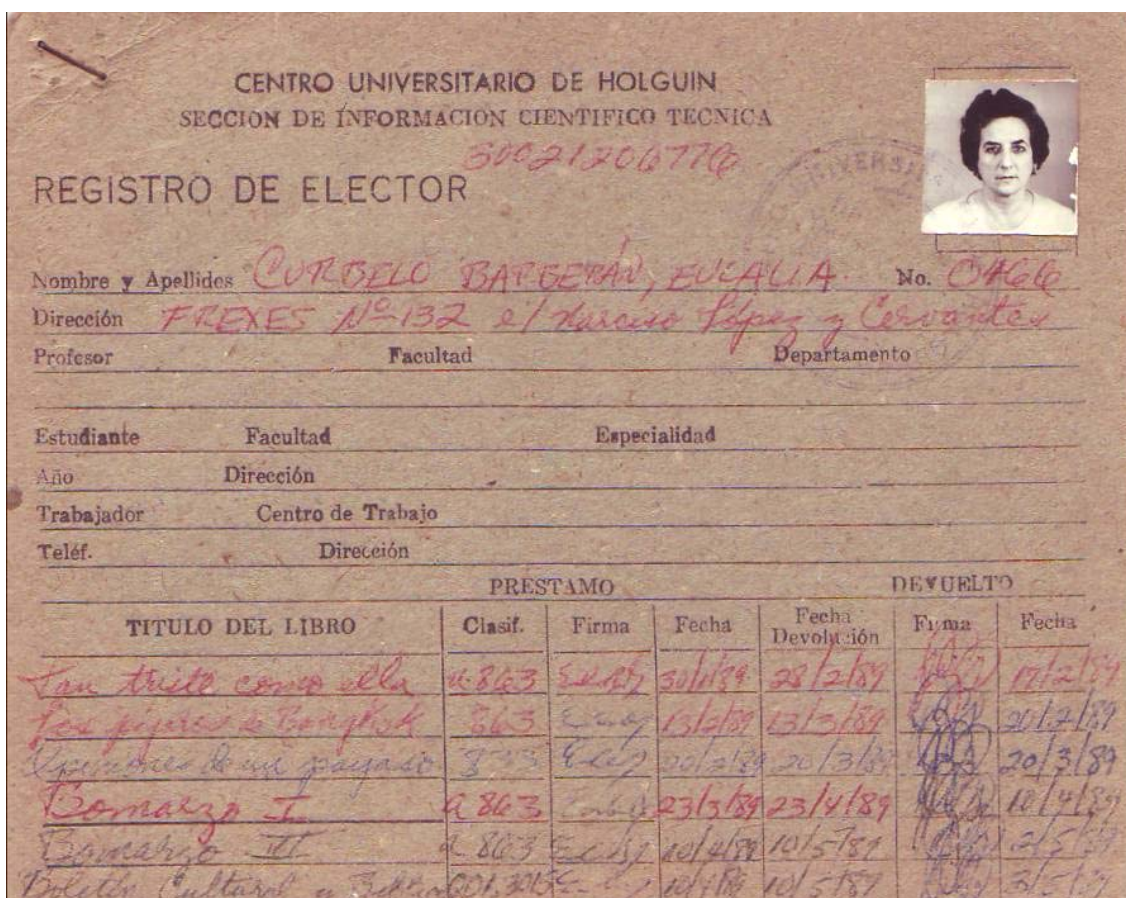 CENTRO UNIVERSITARIO DE HOLGUIN
SECCION DE INFORMACION CIENTIFICO TECNICA
REGISTRO DE ELECTOR
Nombre y Apellidos CURBELO BARBERÁN, EULALIA. No. 0466
Dirección FREXES Nº 132 e/ Narciso López y Cervantes
Profesor Facultad Departamento
Estudiante Facultad Especialidad
Año Dirección
Trabajador Centro de Trabajo
Teléf. Dirección
PRESTAMO DEVUELTO
TITULO DEL LIBRO Clasif. Firma Fecha Fecha Devolución Firma Fecha
Tan triste como ella 863 30/1/89 28/2/89 17/2/89
Los pájaros de Bangkok 863 13/2/89 13/3/89 20/2/89
Opiniones de un payaso 833 20/2/89 20/3/89 20/3/89
Bomarzo I a 863 23/3/89 23/4/89 10/4/89
Bomarzo II a 863 10/4/89 10/5/89 2/5/89
Boletín Cultural y 10/4/89 10/5/89 2/5/89